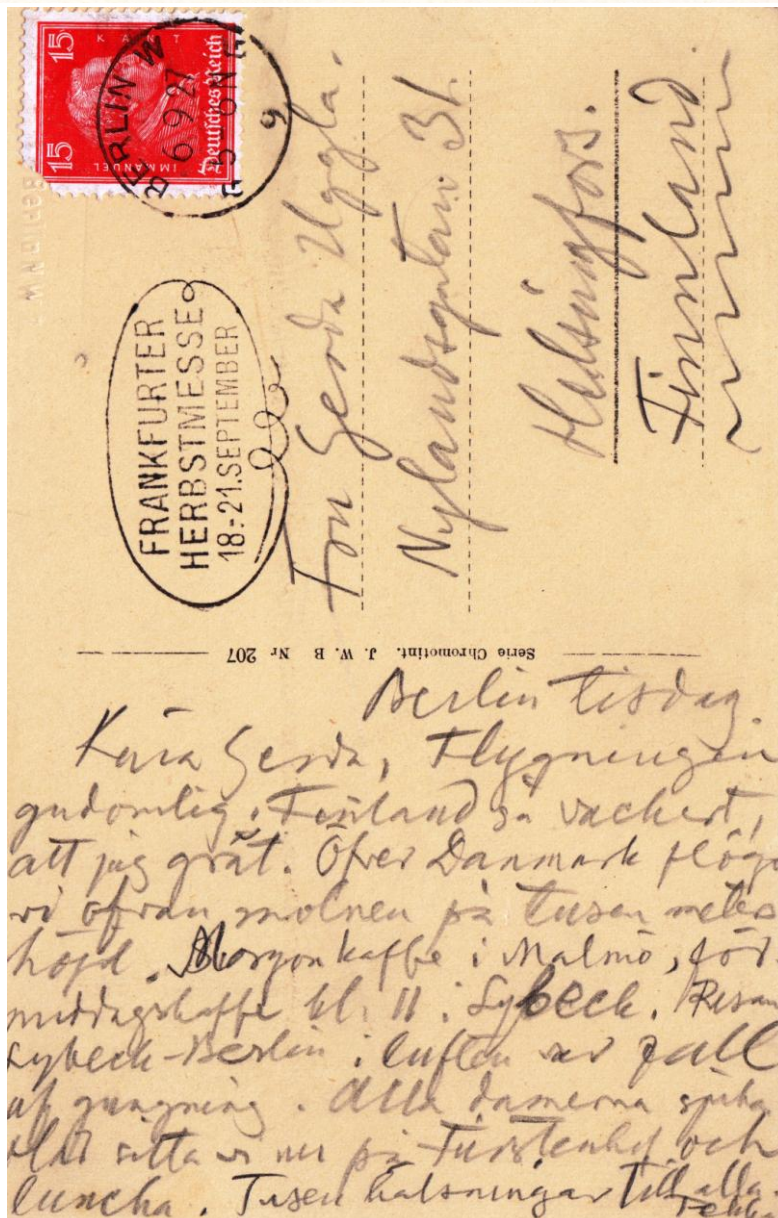 15 KANT 15
IMMANUEL
Deutsches Reich
BERLIN W
6.9.27
9
Berlin NW
FRANKFURTER
HERBSTMESSE
18.-21. SEPTEMBER
Fru Gerda Uggla.
Nylandsgatan 31.
Helsingfors.
Finnland
Serie Chromotint. J. W. B Nr 207
Berlin tisdag
Kära Gerda, Flygningen
gudomlig. Finland så vackert,
att jag grät. Öfver Danmark flögo
vi ofvan molnen på tusen meters
höjd. Morgonkaffe i Malmö, för-
middagskaffe kl. 11 i Lybeck. Resan
Lybeck-Berlin i luften var full
af gungning. Alla damerna spydde
Här sitta vi nu på Fürstenhof och
luncha. Tusen hälsningar till alla.